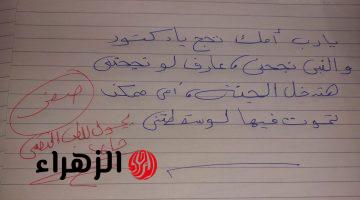 يارب أملك نجح يا دكتور
والنبى نجحنى، عارف لو نجحتنى
هتدخل الجنة، أمى ممكن
تموت فيها لو سقطتنى
صفر
يحول للطب النفسى
الزهراء